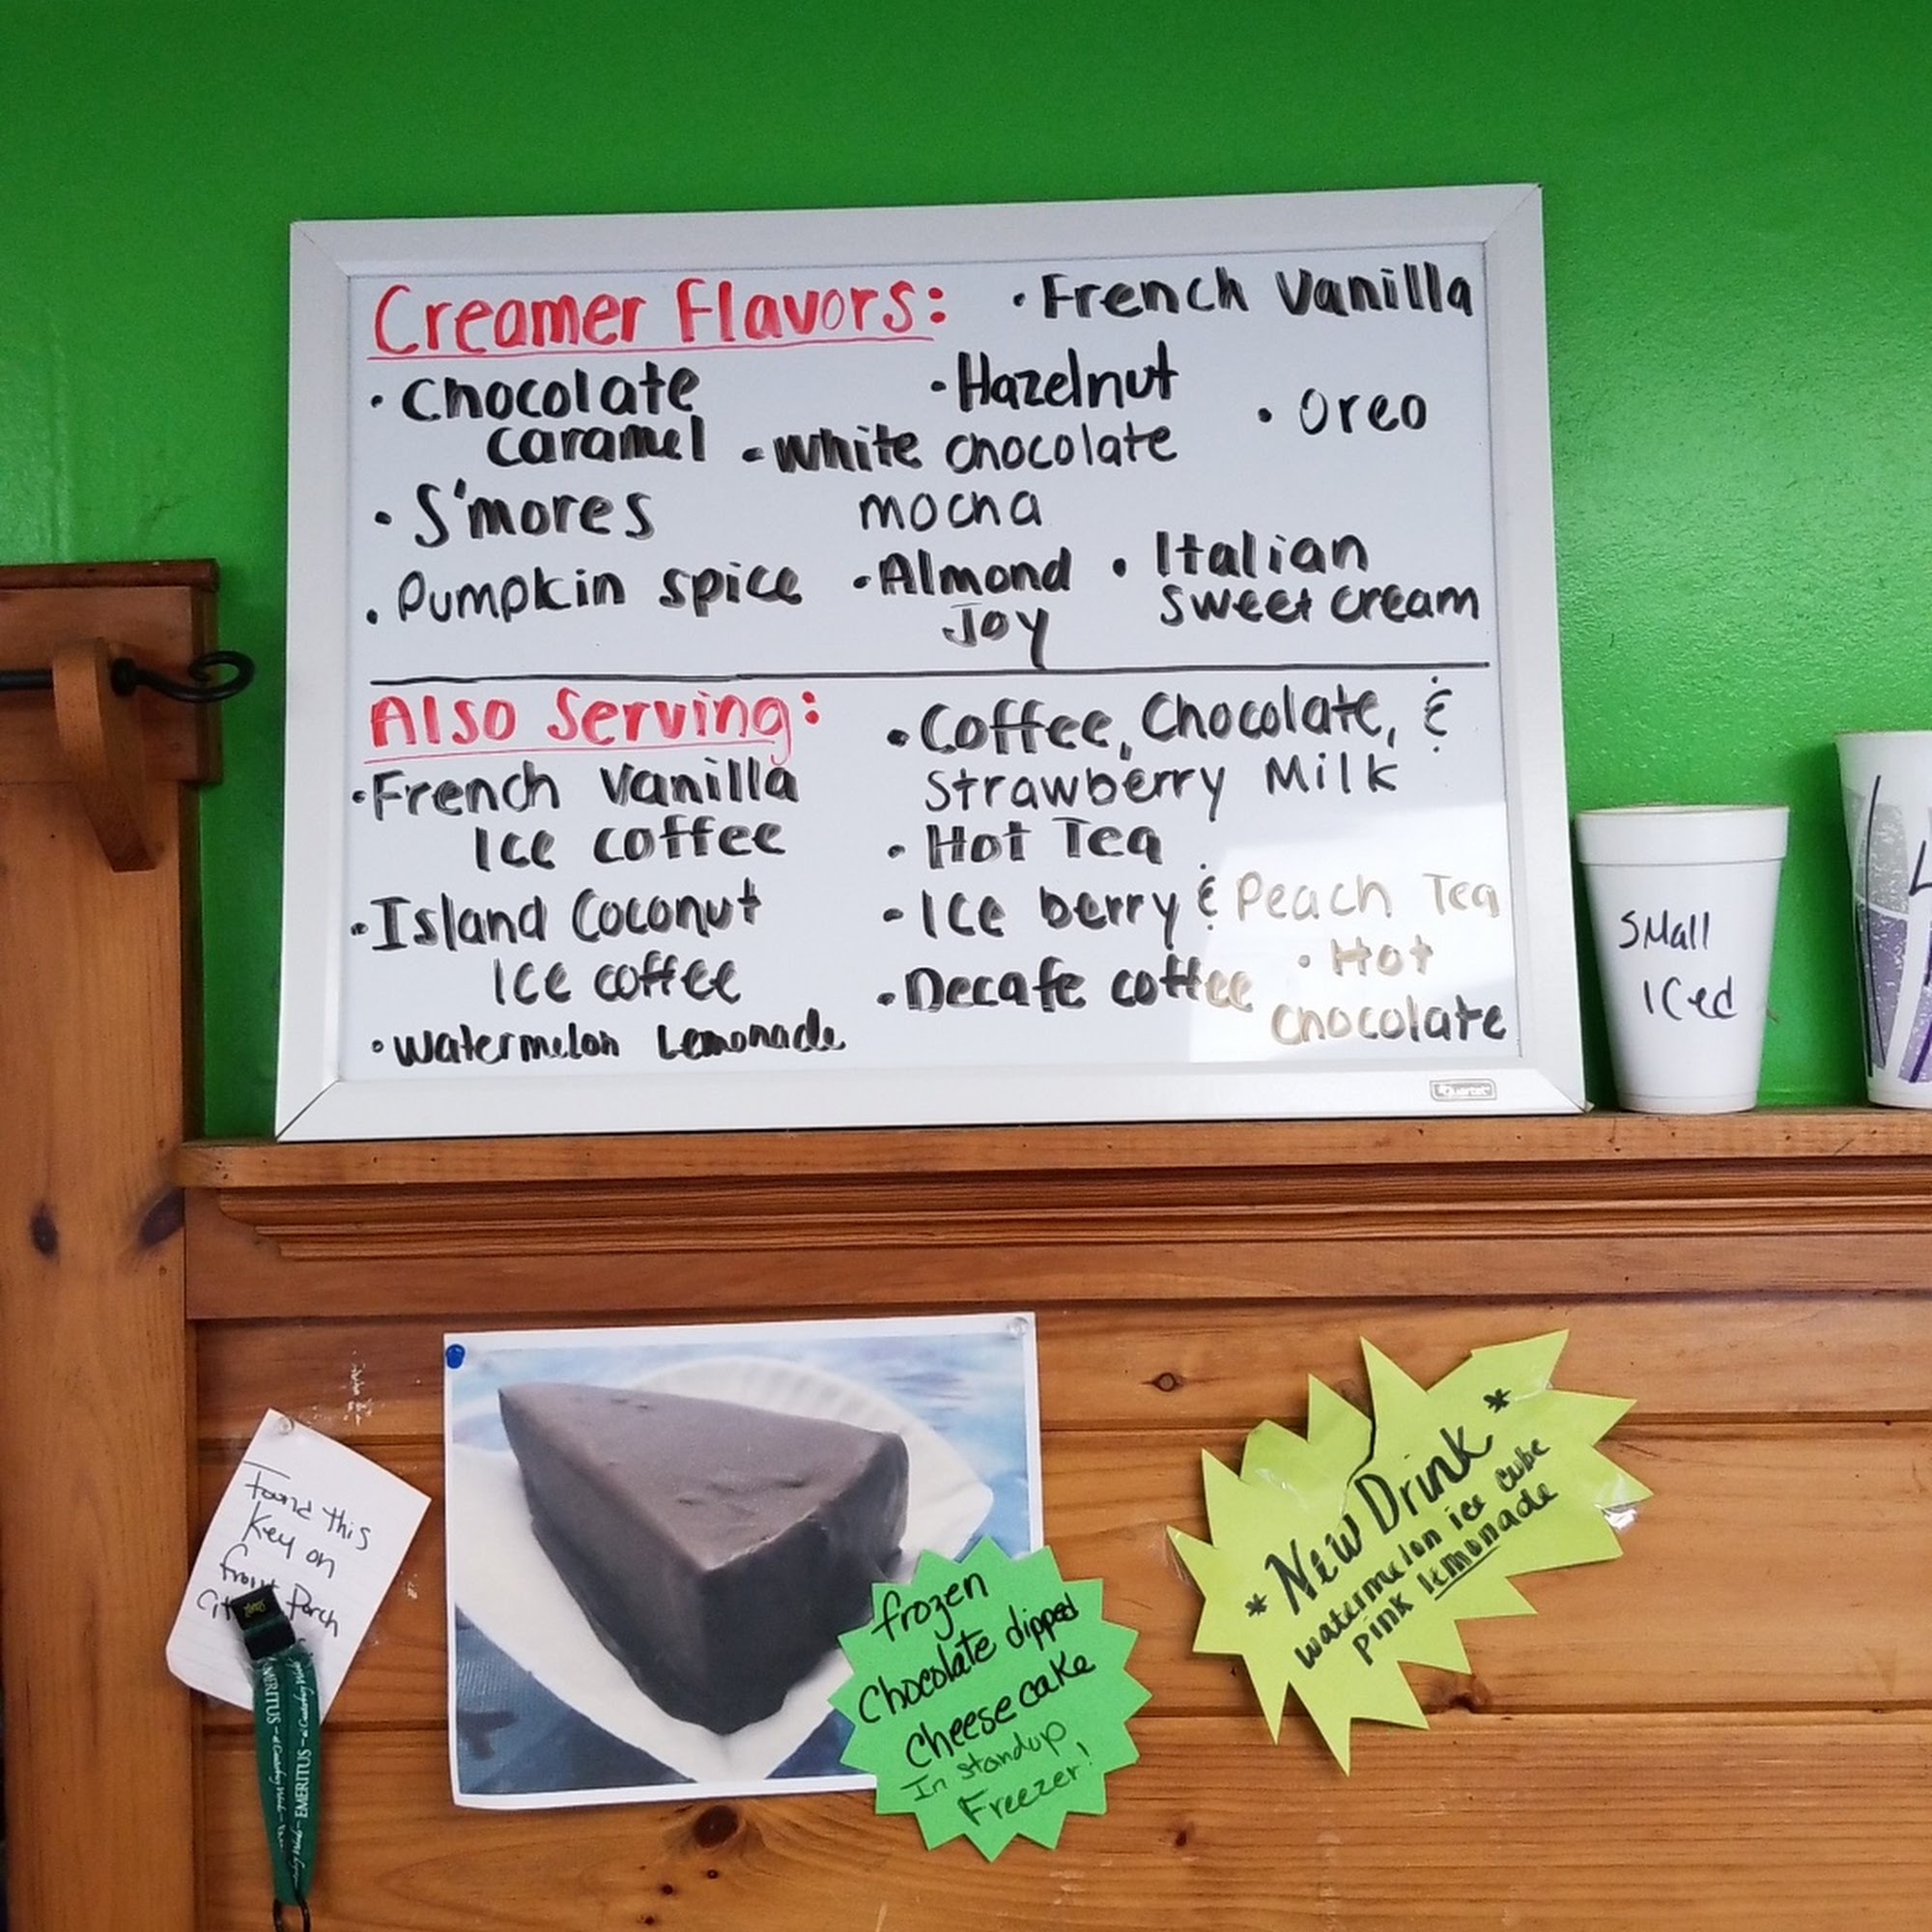 Creamer Flavors:
• French Vanilla
• Chocolate
caramel
• Hazelnut
• Oreo
• White chocolate
mocha
• S'mores
• Pumpkin spice
• Almond
Joy
• Italian
sweet cream
Also Serving:
• French Vanilla
Ice coffee
• Island Coconut
Ice coffee
• Watermelon Lemonade
• Coffee, Chocolate, &
Strawberry Milk
• Hot Tea
• Ice berry & Peach Tea
• Decafe coffee
• Hot
chocolate
Quartet
Small
Iced
Found this
Key on
front Porch
EMERITUS
EMERITUS
frozen
Chocolate dipped
cheesecake
In standup
Freezer!
* New Drink *
watermelon ice cube
pink lemonade